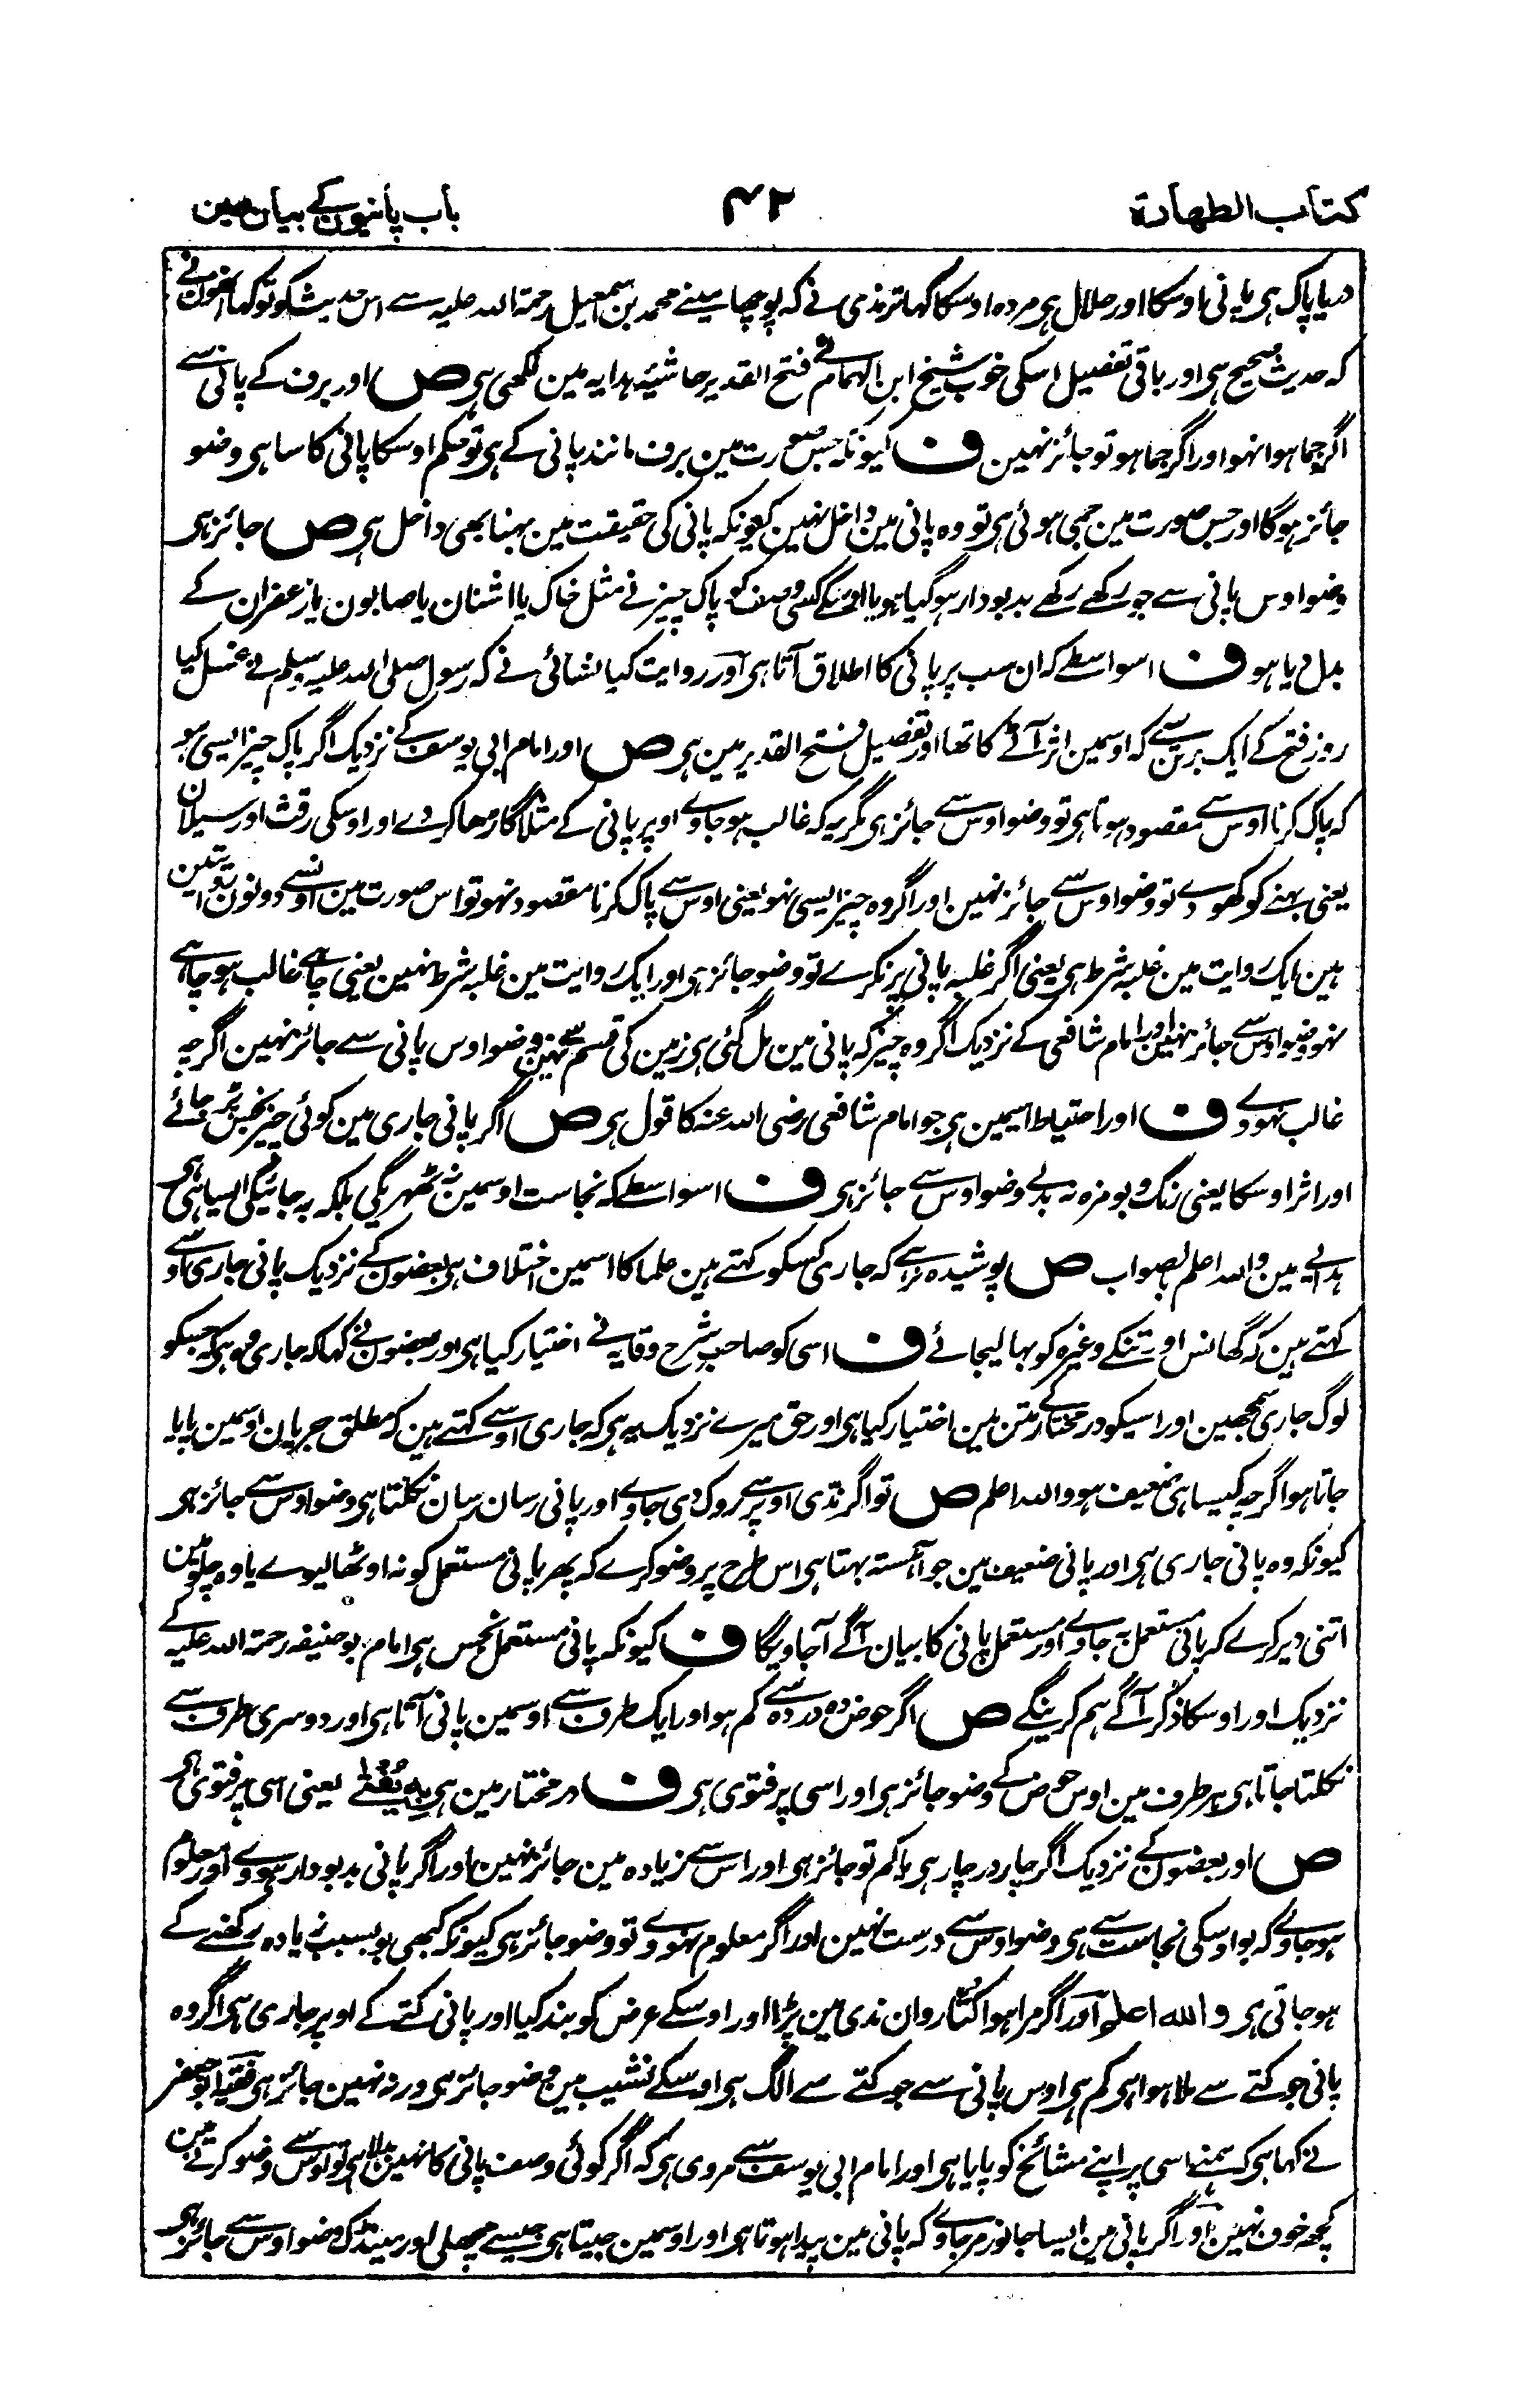 کتاب الطهارة
۴۲
باب پانیون کے بیان مین
دریا پاک ہی پانی اوسکا اور حلال ہی مردہ اوسکا کہا ترمذی نے کہ پوچھا مینے محمد بن سمعیل رحمۃ اللہ علیہ سے اس حدیث کو تو کہا اونھون نے
کہ حدیث صحیح ہی اور باقی تفصیل اسکی خوب شیخ ابن الہمام نے فتح القدیر حاشیۂ ہدایہ مین لکھی ہی ص اور برف کے پانی سے
اگر جما ہوا نہو اور اگر جما ہو تو جائز نہین ف کیونکہ جس صورت مین برف مانند پانی کے ہی تو حکم اوسکا پانی کا سا ہی وضو
جائز ہوگا اور جس صورت مین جمی ہوئی ہی تو وہ پانی مین داخل نہین کیونکہ پانی کی حقیقت مین بہنا بھی داخل ہی ص جائز ہی
وضو اوس پانی سے جو رکھے رکھے بدبودار ہوگیا ہو یا اوسکے کسی وصف کو پاک چیز نے مثل خاک یا اشنان یا صابون یا زعفران کے
بدل دیا ہو ف اسواسطے کہ ان سب پر پانی کا اطلاق آتا ہی اور روایت کیا نسائی نے کہ رسول صلی اللہ علیہ وسلم نے غسل کیا
روز فتح کے ایک برتن سے کہ اوسمین اثر آٹے کا تھا اور تفصیل فتح القدیر مین ہی ص اور امام ابی یوسف کے نزدیک اگر پاک چیز ایسی ہو
کہ پاک کرنا اوس سے مقصود ہوتا ہی تو وضو اوس سے جائز ہی مگر یہ کہ غالب ہوجاوے اوپر پانی کے مثلا گاڑھا کردے اور اوسکی رقت اور سیلان
یعنی بہنے کو کھودے تو وضو اوس سے جائز نہین اور اگر وہ چیز ایسی نہو یعنی اوس سے پاک کرنا مقصود نہو تو اس صورت مین اونسے دونون روایتین
ہین ایک روایت مین غلبہ شرط ہی یعنی اگر غلبہ پانی پر نکرے تو وضو جائز ہی اور ایک روایت مین غلبہ شرط نہین یعنی چاہے غالب ہو چاہے
نہو وضو اوس سے جائز نہین اور امام شافعی کے نزدیک اگر وہ چیز کہ پانی مین مل گئی ہی زمین کی قسم سے نہین وضو اوس پانی سے جائز نہین اگرچہ
غالب نہووے ف اور احتیاط اسیمین ہی جو امام شافعی رضی اللہ عنہ کا قول ہی ص اگر پانی جاری مین کوئی چیز نجس پڑجائے
اور اثر اوسکا یعنی رنگ و بو مزہ نہ بدلے وضو اوس سے جائز ہی ف اسواسطے کہ نجاست اوسمین نہ ٹھہریگی بلکہ بہ جائیگی ایسا ہی ہی
ہدایے مین واللہ اعلم بالصواب ص پوشیدہ نرہے کہ جاری کسکو کہتے ہین علما کا اسمین اختلاف ہی بعضون کے نزدیک پانی جاری اوسے
کہتے ہین کہ گھانس اور تنکے وغیرہ کو بہا لیجائے ف اسی کو صاحب شرح وقایہ نے اختیار کیا ہی اور بعضون نے کہا کہ جاری وہ ہی کہ جسکو
لوگ جاری سمجھین اور اسیکو درمختار کے متن مین اختیار کیا ہی اور حق میرے نزدیک یہ ہی کہ جاری اوسے کہتے ہین کہ مطلق جریان اوسمین پایا
جاتا ہو اگرچہ کیسا ہی ضعیف ہو واللہ اعلم ص تو اگر ندی اوپر سے روک دی جاوے اور پانی رسان رسان نکلتا ہی وضو اوس سے جائز ہی
کیونکہ وہ پانی جاری ہی اور پانی ضعیف مین جو آہستہ بہتا ہی اس طرح پر وضو کرے کہ پھر پانی مستعمل کو نہ اوٹھا لیوے یا دو چلو مین
اتنی دیر کرے کہ پانی مستعمل بہ جاوے اور مستعمل پانی کا بیان آگے آجاویگا ف کیونکہ پانی مستعمل نجس ہی امام بوحنیفہ رحمۃ اللہ علیہ کے
نزدیک اور اوسکا ذکر آگے ہم کرینگے ص اگر حوض دہ در دہ سے کم ہو اور ایک طرف سے اوسمین پانی آتا ہی اور دوسری طرف سے
نکلتا جاتا ہی ہر طرف مین اوس حوض کے وضو جائز ہی اور اسی پر فتوی ہی ف درمختار مین ہی بِهٖ یُفْتٰے یعنی اسی پر فتوی ہی
ص اور بعضون کے نزدیک اگر چار در چار ہی یا کم تو جائز ہی اور اس سے زیادہ مین جائز نہین اور اگر پانی بدبودار ہووے اور معلوم
ہوجاوے کہ بو اوسکی نجاست سے ہی وضو اوس سے درست نہین اور اگر معلوم نہووے تو وضو جائز ہی کیونکہ کبھی بو بسبب زیادہ رکھنے کے
ہوجاتی ہی واللہ اعلم اور اگر مرا ہوا کتا روان ندی مین پڑا اور اوسکے عرض کو بند کیا اور پانی کتے کے اوپر جاری ہی اگر وہ
پانی جو کتے سے ملا ہوا ہی کم ہی اوس پانی سے جو کتے سے الگ ہی اوسکے نشیب مین وضو جائز ہی ورنہ نہین جائز ہی فقیہ ابو جعفر
نے کہا ہی کہ ہمنے اسی پر اپنے مشائخ کو پایا ہی اور امام ابی یوسف سے مروی ہی کہ اگر کوئی وصف پانی کا نہین بدلا ہی تو اوس سے وضو کرنے مین
کچھ خوف نہین اور اگر پانی مین ایسا جانور مرجاوے کہ پانی مین پیدا ہوتا ہی اور اوسمین جیتا ہی جیسے مچھلی اور مینڈک وضو اوس سے جائز ہی